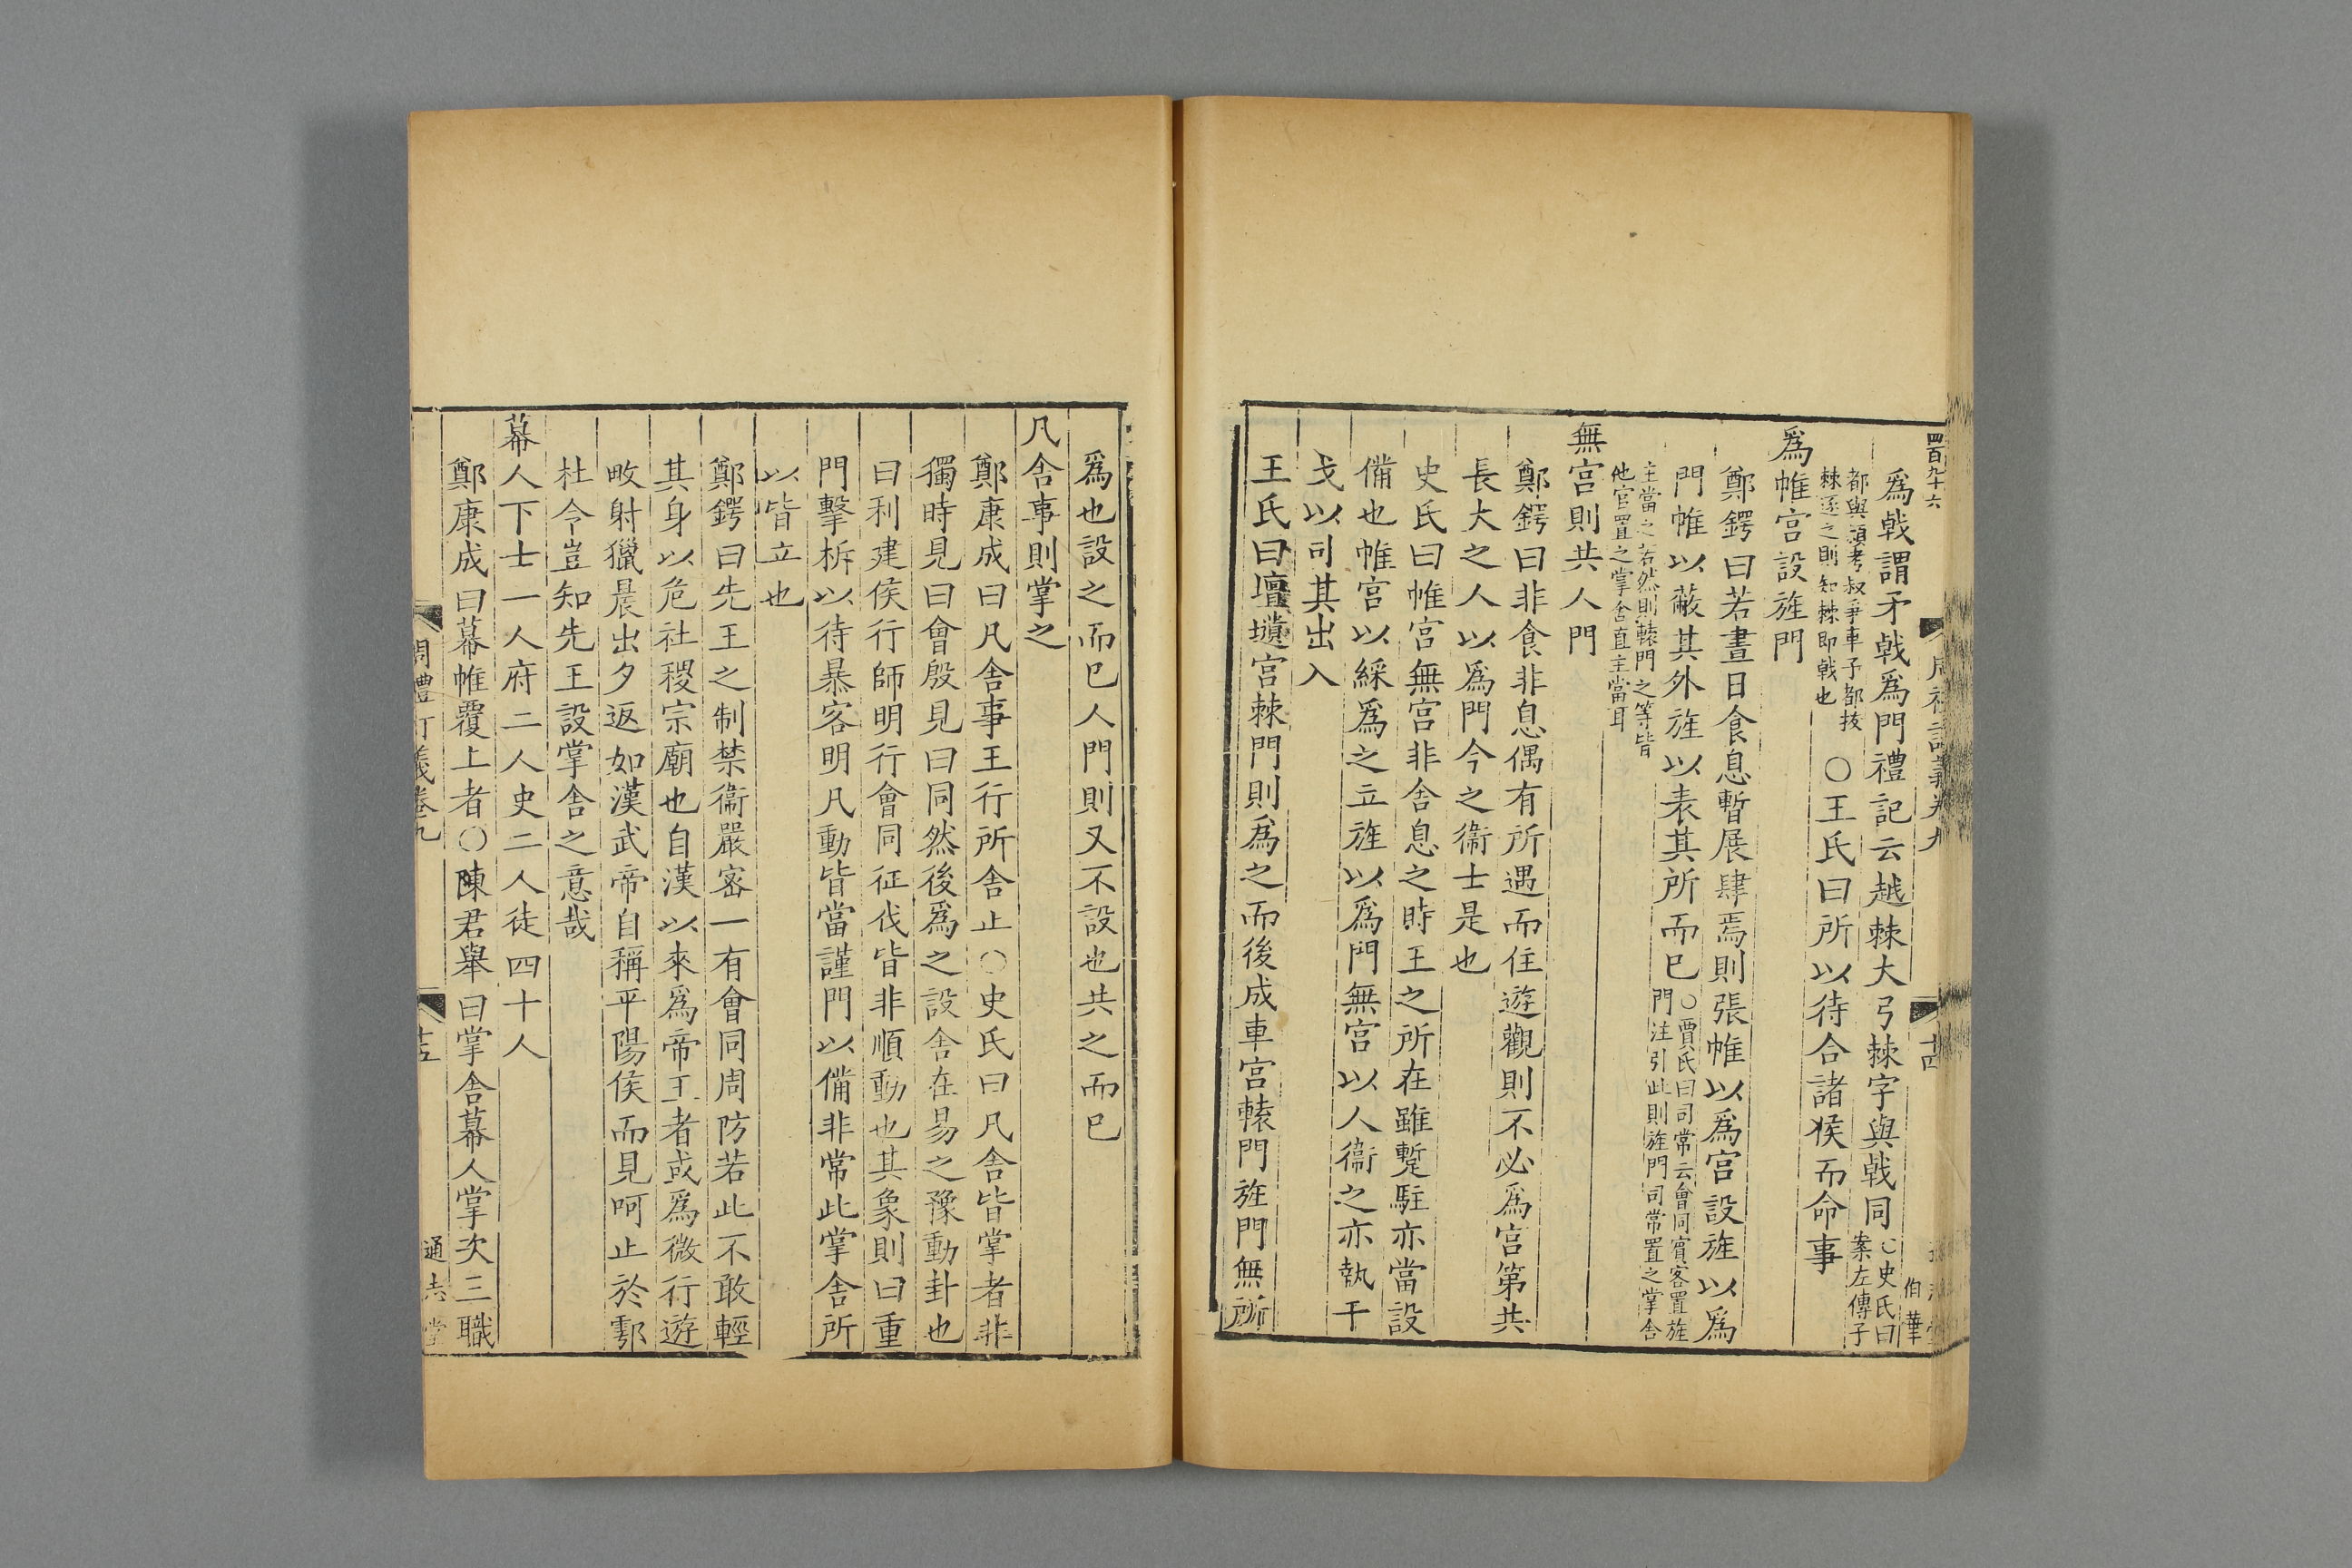 四百九十六
爲戟謂矛戟爲門禮記云越棘大弓棘字與戟同○史氏曰
案左傳子
都與潁考叔爭車子都拔
棘逐之則知棘即戟也
○王氏曰所以待合諸侯而命事
爲帷宮設旌門
鄭鍔曰若晝日食息暫展肆焉則張帷以爲宮設旌以爲
門帷以蔽其外旌以表其所而已○賈氏曰司常云會同賓客置旌
門注引此則旌門司常置之掌舍
主當之若然則轅門之等皆
他官置之掌舍直主當耳
無宮則共人門
鄭鍔曰非食非息偶有所遇而住遊觀則不必爲宮第共
長大之人以爲門今之衞士是也
史氏曰帷宮無宮非舍息之時王之所在雖蹔駐亦當設
備也帷宮以綵爲之立旌以爲門無宮以人衞之亦執干
戈以司其出入
王氏曰壇壝宮棘門則爲之而後成車宮轅門旌門無所
十四
伯華
爲也設之而已人門則又不設也共之而已
凡舍事則掌之
鄭康成曰凡舍事王行所舍止○史氏曰凡舍皆掌者非
獨時見曰會殷見曰同然後爲之設舍在易之豫動卦也
曰利建侯行師明行會同征伐皆非順動也其象則曰重
門擊柝以待暴客明凡動皆當謹門以備非常此掌舍所
以皆立也
鄭鍔曰先王之制禁衞嚴密一有會同周防若此不敢輕
其身以危社稷宗廟也自漢以來爲帝王者或爲微行遊
畋射獵晨出夕返如漢武帝自稱平陽侯而見呵止於鄠
杜令豈知先王設掌舍之意哉
幕人下士一人府二人史二人徒四十人
鄭康成曰幕帷覆上者○陳君舉曰掌舍幕人掌次三職
周禮訂義卷九
十五
通志堂